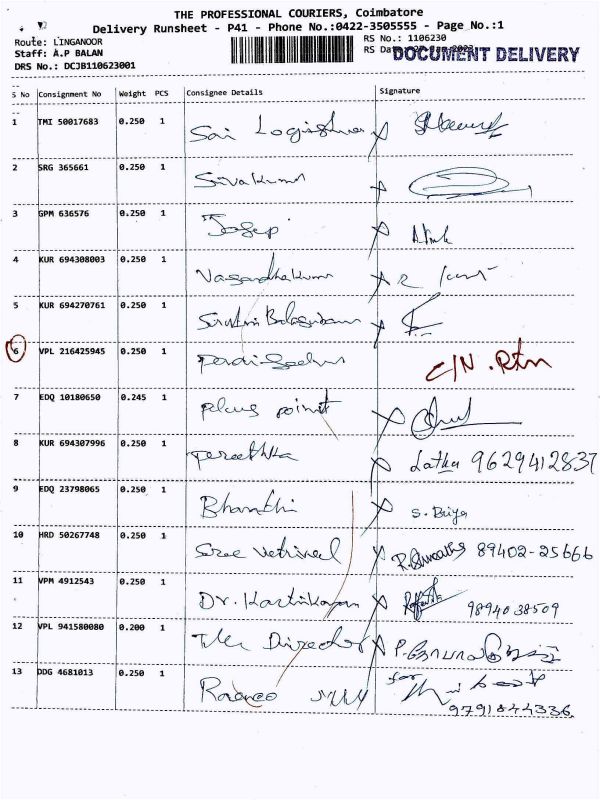 THE PROFESSIONAL COURIERS, Coimbatore
Delivery Runsheet - P41 - Phone No.:0422-3505555 - Page No.:1
Route: LINGANOOR RS No.: 1106230
Staff: A.P BALAN RS Date: DOCUMENT DELIVERY
DRS No.: DCJB110623001
S No Consignment No Weight PCS Consignee Details Signature
1 TMI 50017683 0.250 1 Sai
2 SRG 365661 0.250 1 Sivakumar
3 GPM 636576 0.250 1
4 KUR 694308003 0.250 1 Vasandhakumar
5 KUR 694270761 0.250 1
6 VPL 216425945 0.250 1 C/N. Rtn
7 EDQ 10180650 0.245 1 Plus point
8 KUR 694307996 0.250 1 Latha 9629412837
9 EDQ 23798065 0.250 1 Bhanthi S. Briya
10 HRD 50267748 0.250 1 Sree Vetrivel 89402-25666
11 VPM 4912543 0.250 1 Dr. Karthikayan 9894038509
12 VPL 941580080 0.200 1 The Director
13 DDG 4681013 0.250 1 for
9791844336